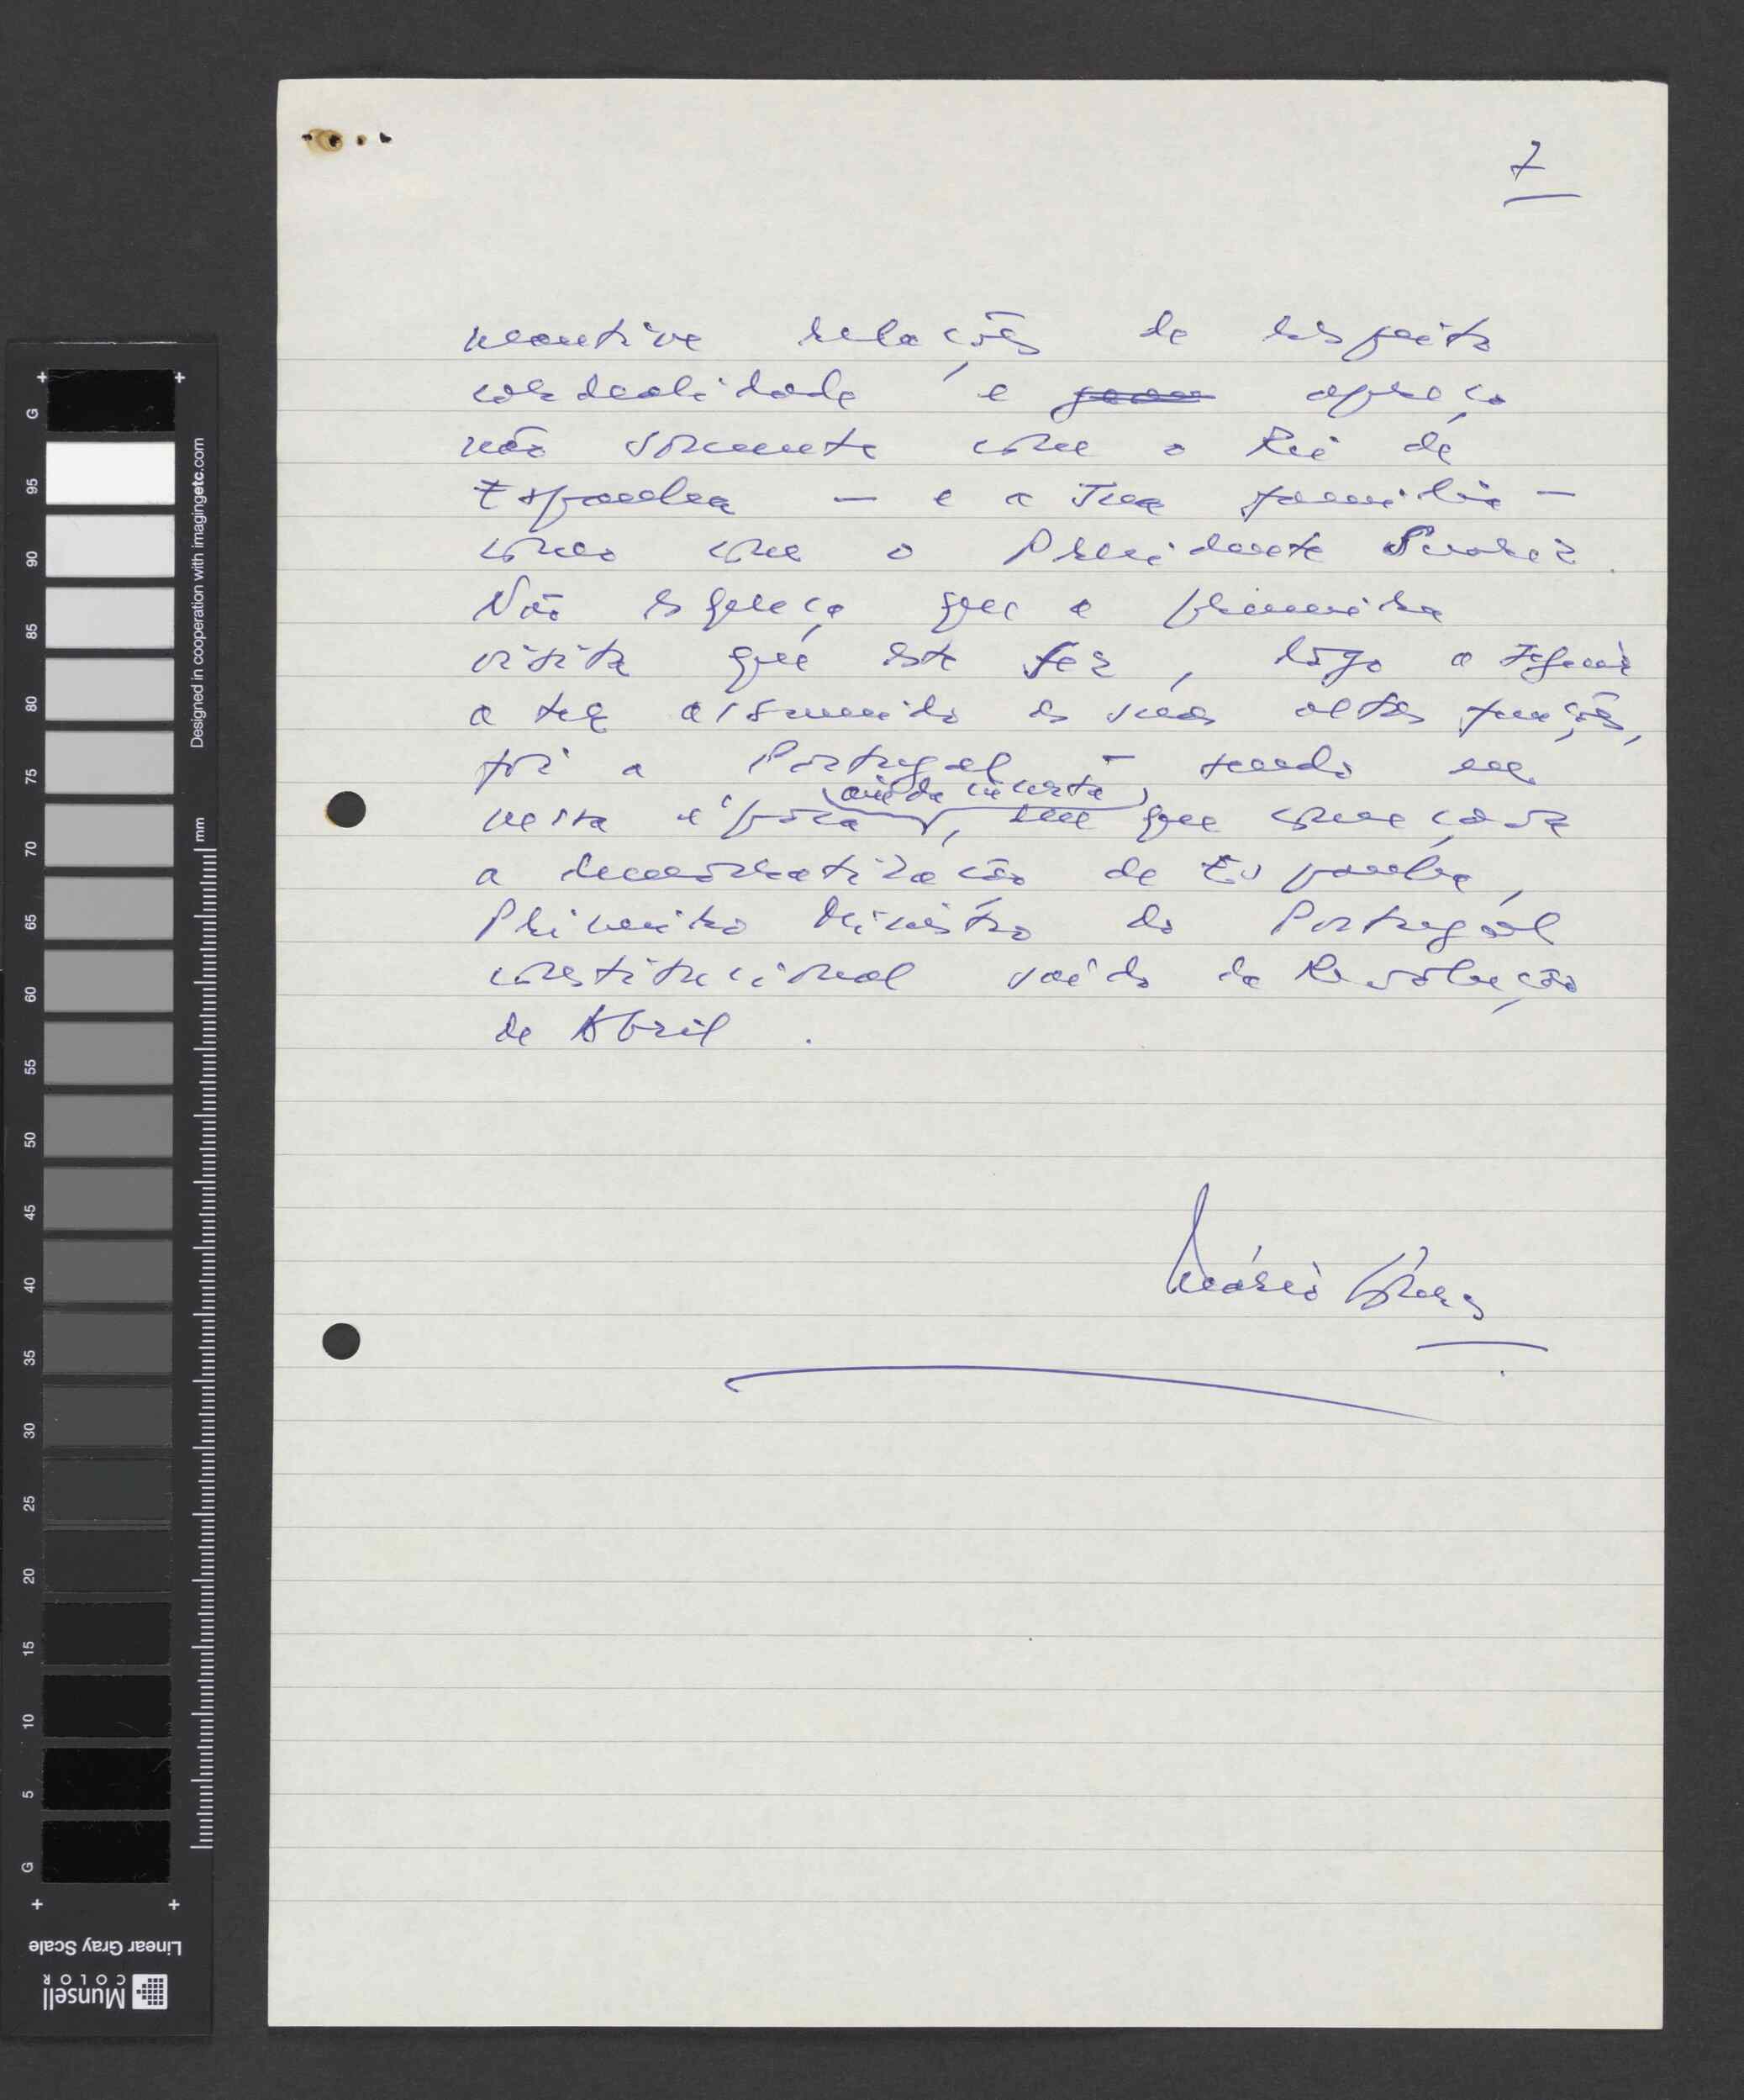 7
mantive relações de respeito
cordealidade, e apreço
não somente com o Rei de
Espanha — e a sua família —
como com o Presidente Suarez.
Não esqueço que a primeira
visita que este fez, logo a seguir
a ter assumido as suas altas funções,
foi a Portugal — sendo eu
ainda incerta
nessa época, em que começava
a democratização de Espanha,
Primeiro Ministro do Portugal
constitucional saído da Revolução
de Abril.
Mário Soares
G
95
90
85
80
75
70
65
60
55
50
45
40
35
30
25
20
15
10
5
G
mm
Designed in cooperation with imagingetc.com
Linear Gray Scale
Munsell
COLOR